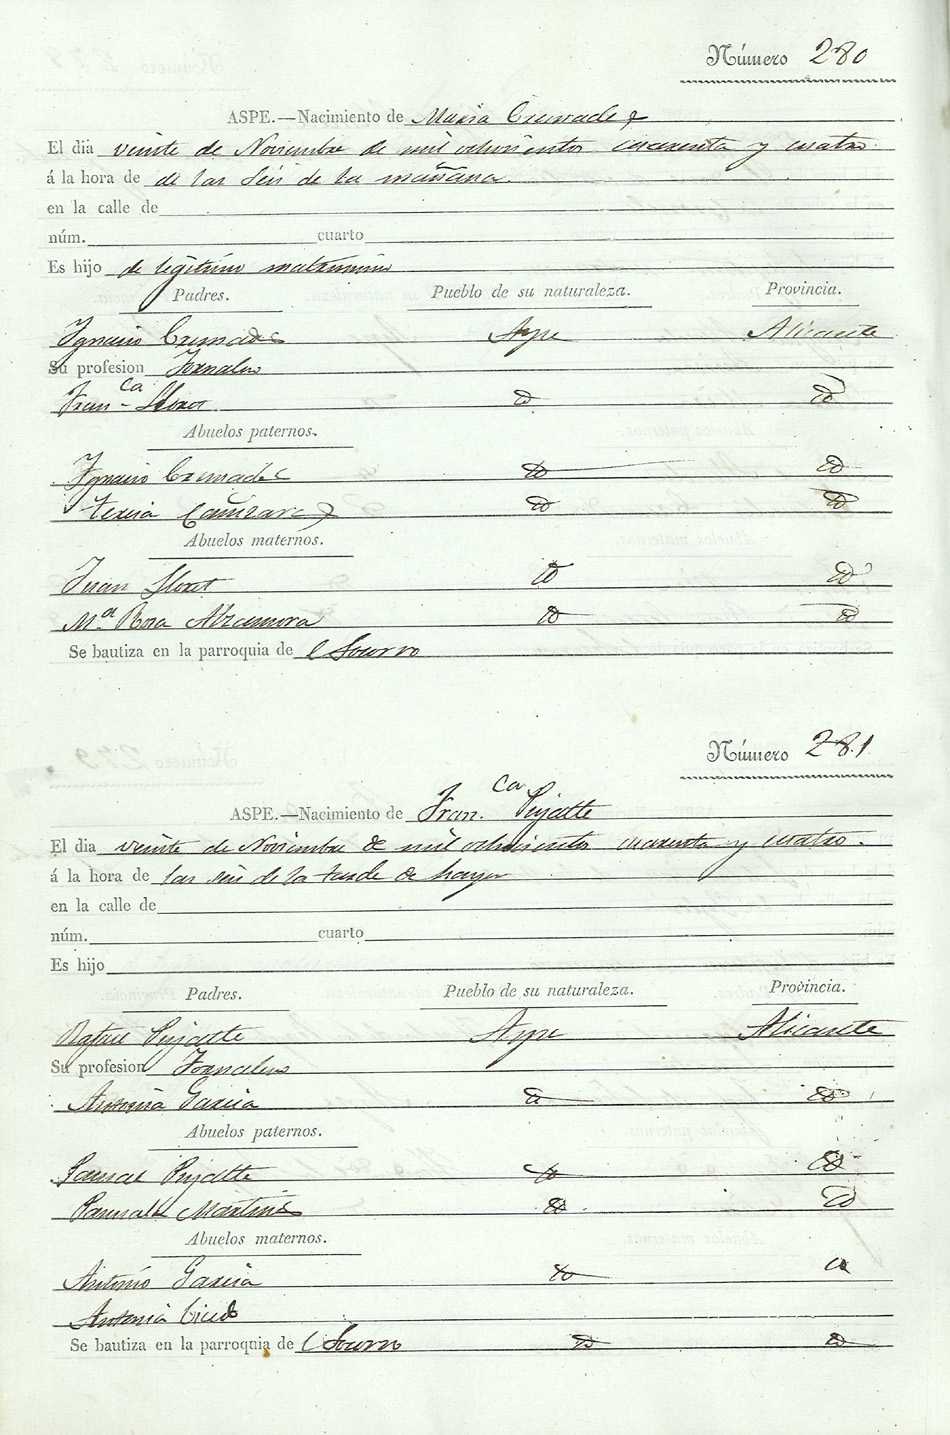 Número 280
ASPE.—Nacimiento de Maria Cremades
El dia veinte de Noviembre de mil ochocientos cuarenta y cuatro
á la hora de de las seis de la mañana
en la calle de
núm. cuarto
Es hijo de legitimo matrimonio
Padres. Pueblo de su naturaleza. Provincia.
Ygnacio Cremades Aspe Alicante
Su profesion Jornalero
Fran.ca Lloret
Abuelos paternos.
Ygnacio Cremades
Teresa Cañizares
Abuelos maternos.
Juan Lloret
M.a Rosa Alzamora
Se bautiza en la parroquia de l Socorro
Número 281
ASPE.—Nacimiento de Fran.ca Pujalte
El dia veinte de Noviembre de mil ochocientos cuarenta y cuatro.
á la hora de las seis de la tarde de
en la calle de
núm. cuarto
Es hijo
Padres. Pueblo de su naturaleza. Provincia.
Rafael Pujalte Aspe Alicante
Su profesion Jornalero
Antonia Garcia
Abuelos paternos.
Pujalte
Martines
Abuelos maternos.
Antonio Garcia
Antonia
Se bautiza en la parroquia de l Socorro